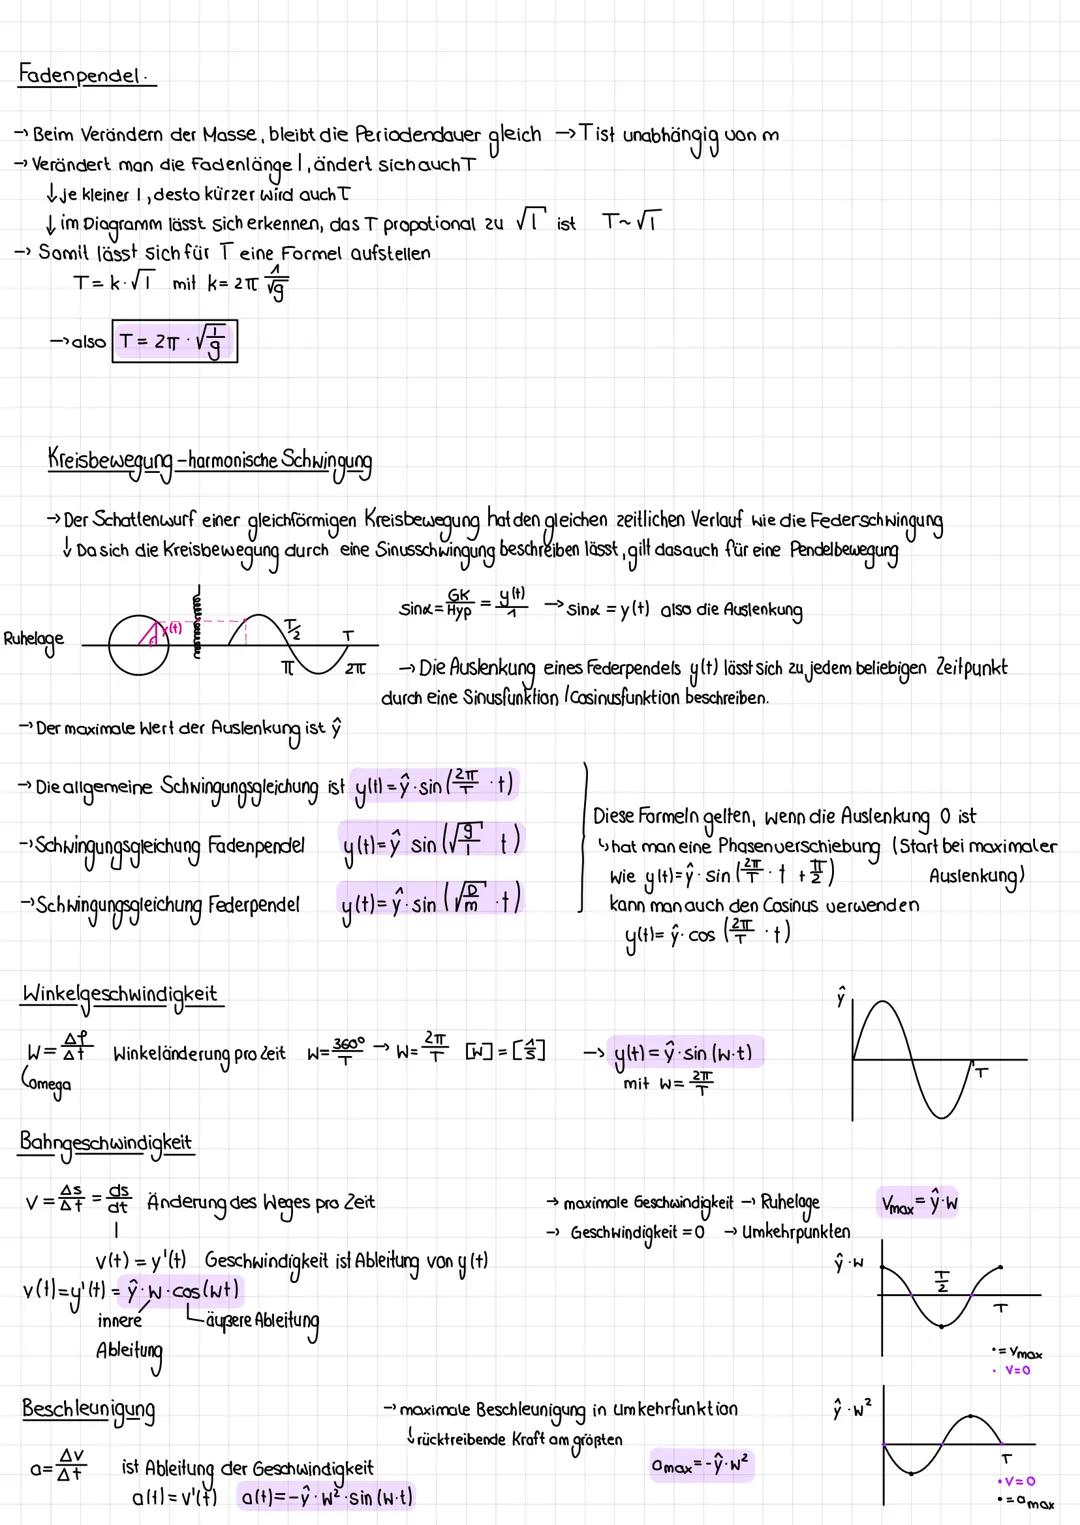 Fadenpendel.
→ Beim Verändern der Masse, bleibt die Periodendauer gleich → T ist unabhängig von m
→ Verändert man die Fadenlänge l, ändert sich auch T
↓ je kleiner l, desto kürzer wird auch T
↓ im Diagramm lässt sich erkennen, das T propotional zu √l ist T~√l
→ Somit lässt sich für T eine Formel aufstellen
T = k·√l mit k = 2π 1/√g
→ also T = 2π · √(l/g)
Kreisbewegung - harmonische Schwingung
→ Der Schattenwurf einer gleichförmigen Kreisbewegung hat den gleichen zeitlichen Verlauf wie die Federschwingung
↓ Da sich die Kreisbewegung durch eine Sinusschwingung beschreiben lässt, gilt das auch für eine Pendelbewegung
sinα = GK/Hyp = y(t)/1 → sinα = y(t) also die Auslenkung
Ruhelage
y(t)
T/2
T
π
2π
→ Die Auslenkung eines Federpendels y(t) lässt sich zu jedem beliebigen Zeitpunkt
durch eine Sinusfunktion / Cosinusfunktion beschreiben.
→ Der maximale Wert der Auslenkung ist ŷ
→ Die allgemeine Schwingungsgleichung ist y(t) = ŷ · sin(2π/T · t)
→ Schwingungsgleichung Fadenpendel y(t) = ŷ sin(√(g/l) t)
→ Schwingungsgleichung Federpendel y(t) = ŷ · sin(√(D/m) · t)
Diese Formeln gelten, wenn die Auslenkung 0 ist
↳ hat man eine Phasenverschiebung (Start bei maximaler
wie y(t) = ŷ · sin(2π/T · t + π/2) Auslenkung)
kann man auch den Cosinus verwenden
y(t) = ŷ · cos(2π/T · t)
Winkelgeschwindigkeit
w = Δφ/Δt Winkeländerung pro Zeit w = 360°/T → w = 2π/T [w] = [1/s] → y(t) = ŷ · sin(w·t)
omega
mit w = 2π/T
ŷ
T
Bahngeschwindigkeit
v = Δs/Δt = ds/dt Änderung des Weges pro Zeit
→ maximale Geschwindigkeit → Ruhelage Vmax = ŷ·w
→ Geschwindigkeit = 0 → Umkehrpunkten
v(t) = y'(t) Geschwindigkeit ist Ableitung von y(t)
v(t) = y'(t) = ŷ · w · cos(wt)
innere äußere Ableitung
Ableitung
ŷ · w
T/2
T
• = Vmax
• V=0
Beschleunigung
→ maximale Beschleunigung in Umkehrfunktion
↓ rücktreibende Kraft am größten
a = Δv/Δt ist Ableitung der Geschwindigkeit
amax = -ŷ·w²
a(t) = v'(t) a(t) = -ŷ · w² · sin(w·t)
ŷ · w²
T
• V=0
• = amax